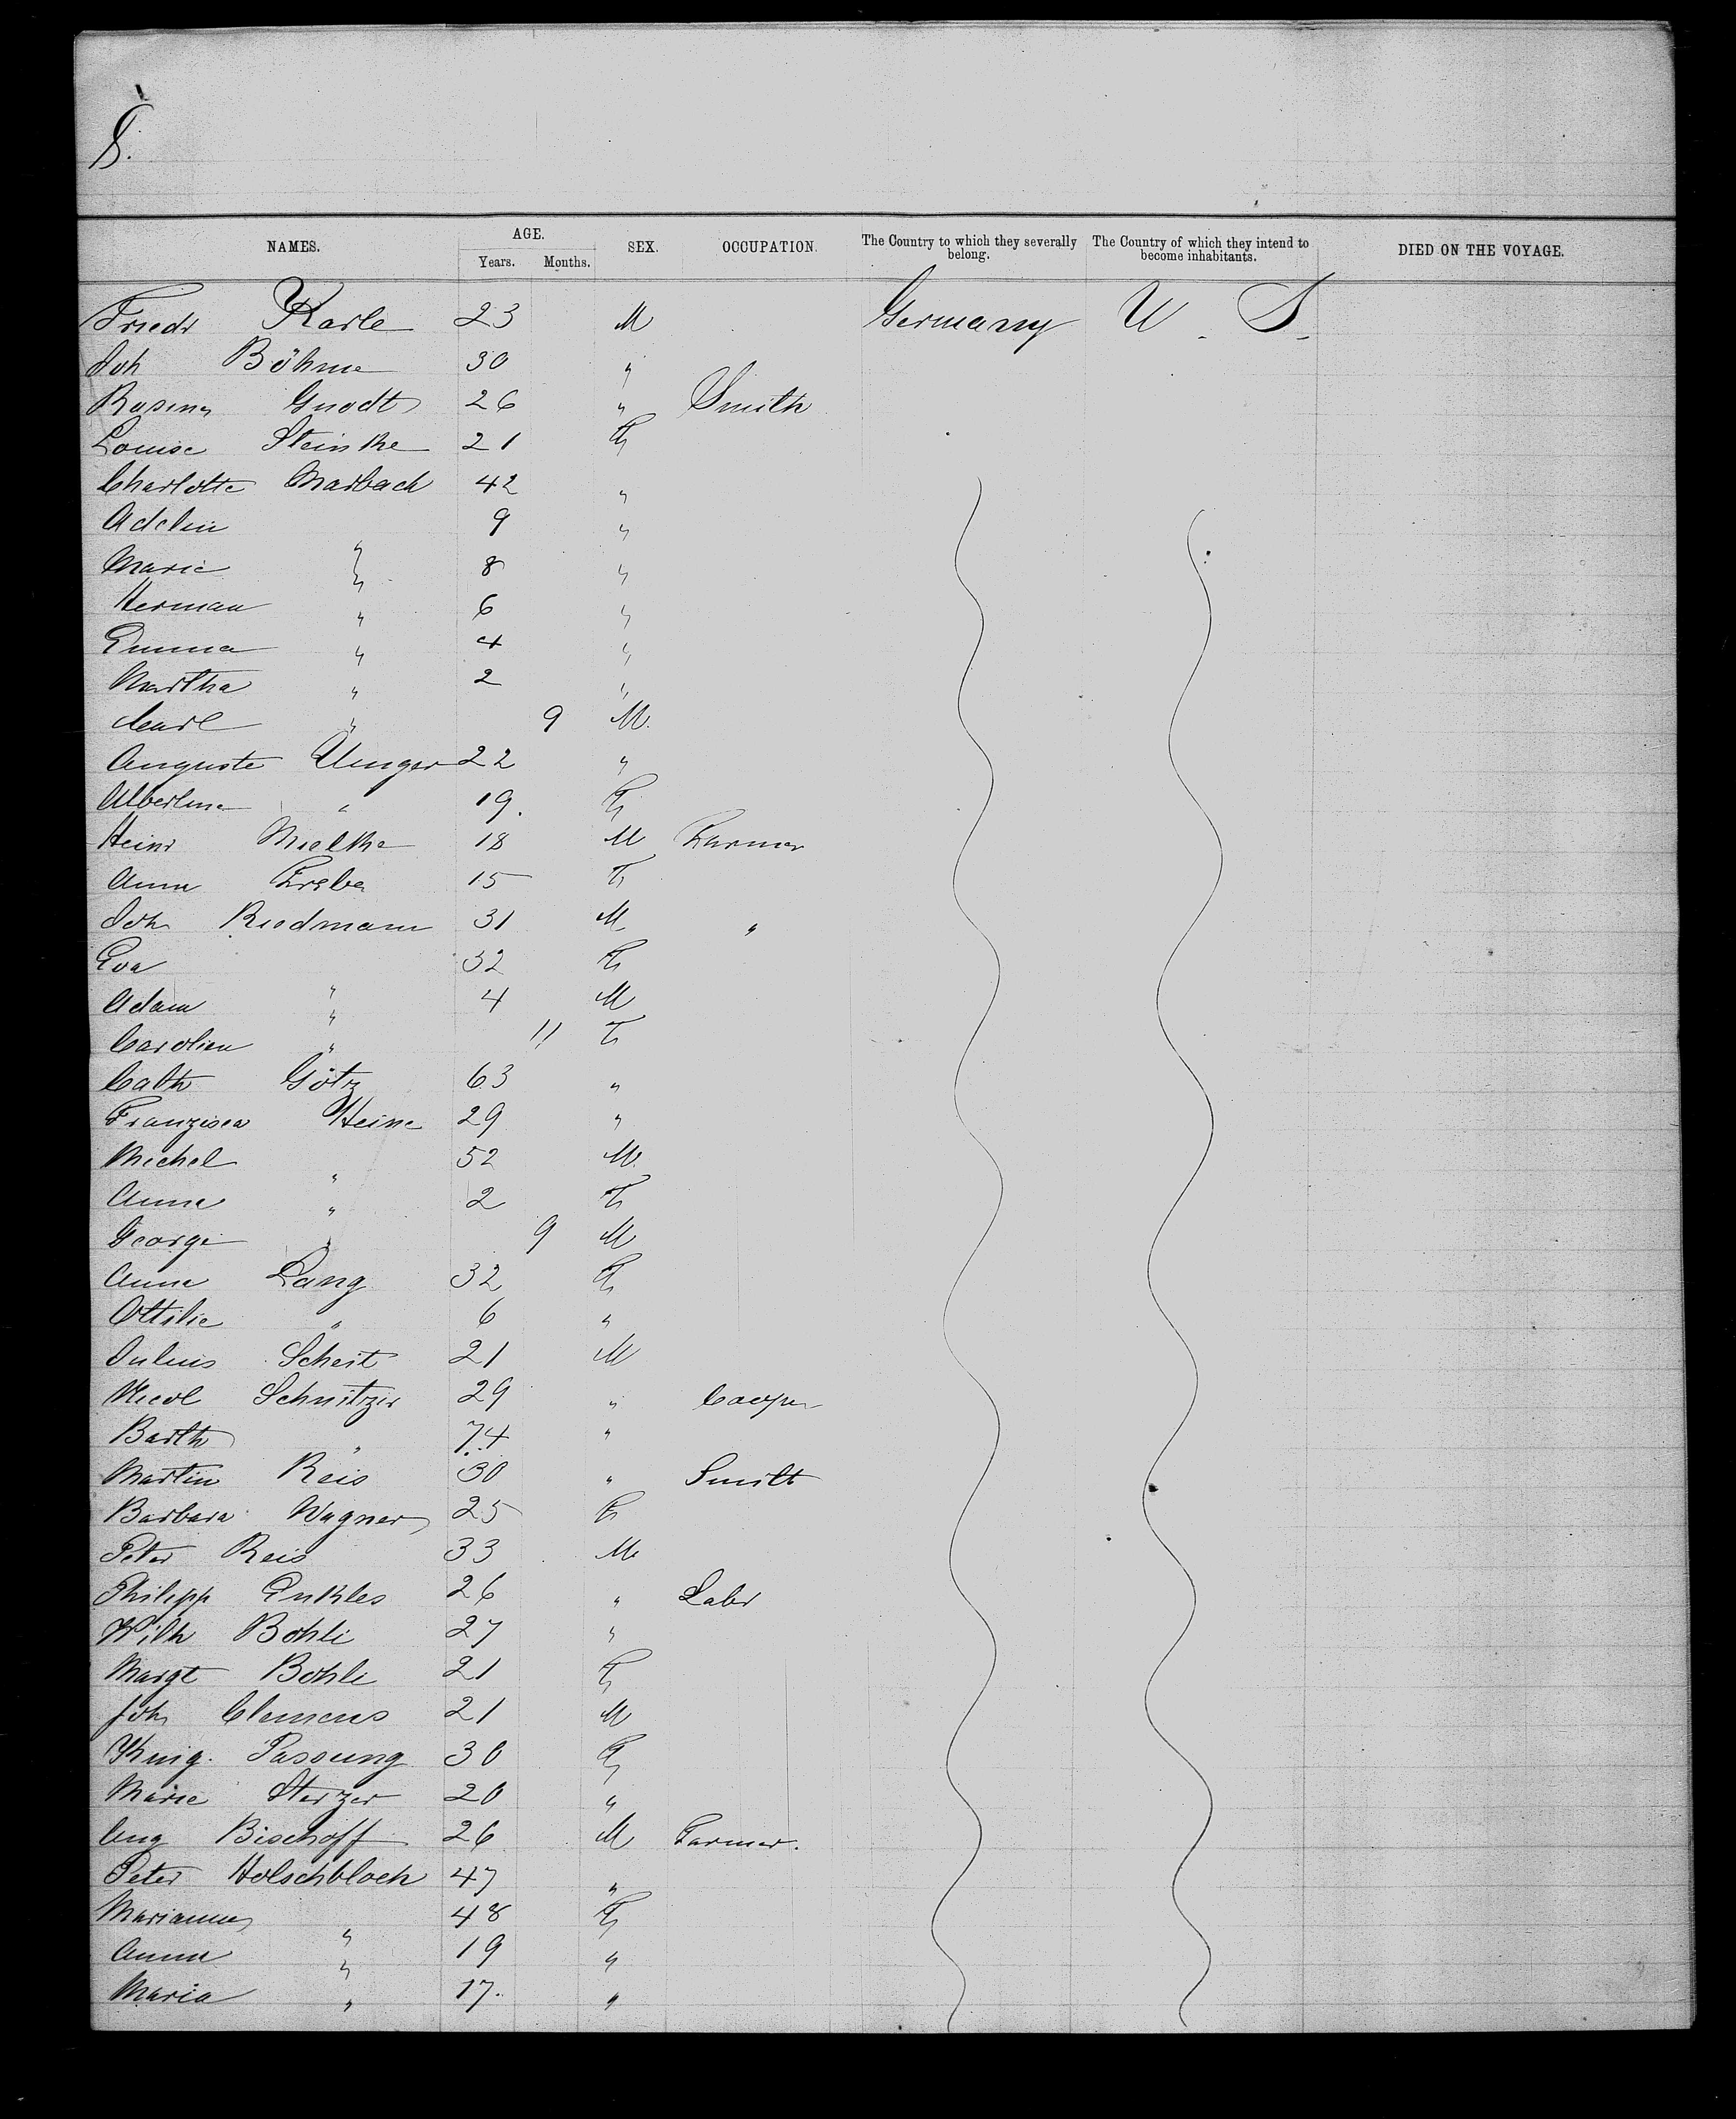 8.
NAMES. AGE. Years. Months. SEX. OCCUPATION. The Country to which they severally belong. The Country of which they intend to become inhabitants. DIED ON THE VOYAGE.
Friedr Karle 23 M Germany U. S.
Joh Böhme 30 "
Rosina Gnodt 26 " Smith
Louise Steinke 21 F
Charlotte Marbach 42 "
Adelin " 9 "
Marie " 8 "
Herman " 6 "
Emma " 4 "
Martha " 2 "
Carl " 9 M.
Auguste Unger 22 "
Albertine " 19. F
Heinr Mielke 18 M Farmer
Anna 15 F
Joh Riedmann 31 M "
Eva " 32 F
Adam " 4 M
Carolien " 11 F
Cath Götz 63 "
Franzisca Heine 29 "
Michel " 52 M.
Anna " 2 F
George " 9 M
Anna Lang 32 F
Ottilie " 6 "
Julius Scheit 21 M
Nicol Schnitzer 29 " Cooper
Barth " 74 "
Martin Reis 30 " Smith
Barbara Wagner 25 F
Peter Reis 33 M
Philipp Enkles 26 " Labr
Wilh Bohli 27 "
Margt Bohli 21 F
Joh Clemens 21 M
Kuig. Passung 30 F
Marie Sterzer 20 "
Aug Bischoff 26 M Farmer.
Peter Holschbloch 47 "
Marianna " 48 F
Anna " 19 "
Maria " 17. "